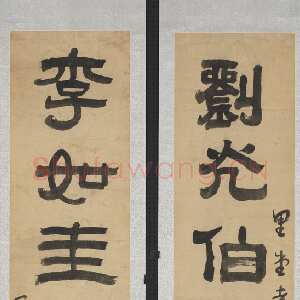 劉光伯
里堂
李如圭
Shufawang.cn